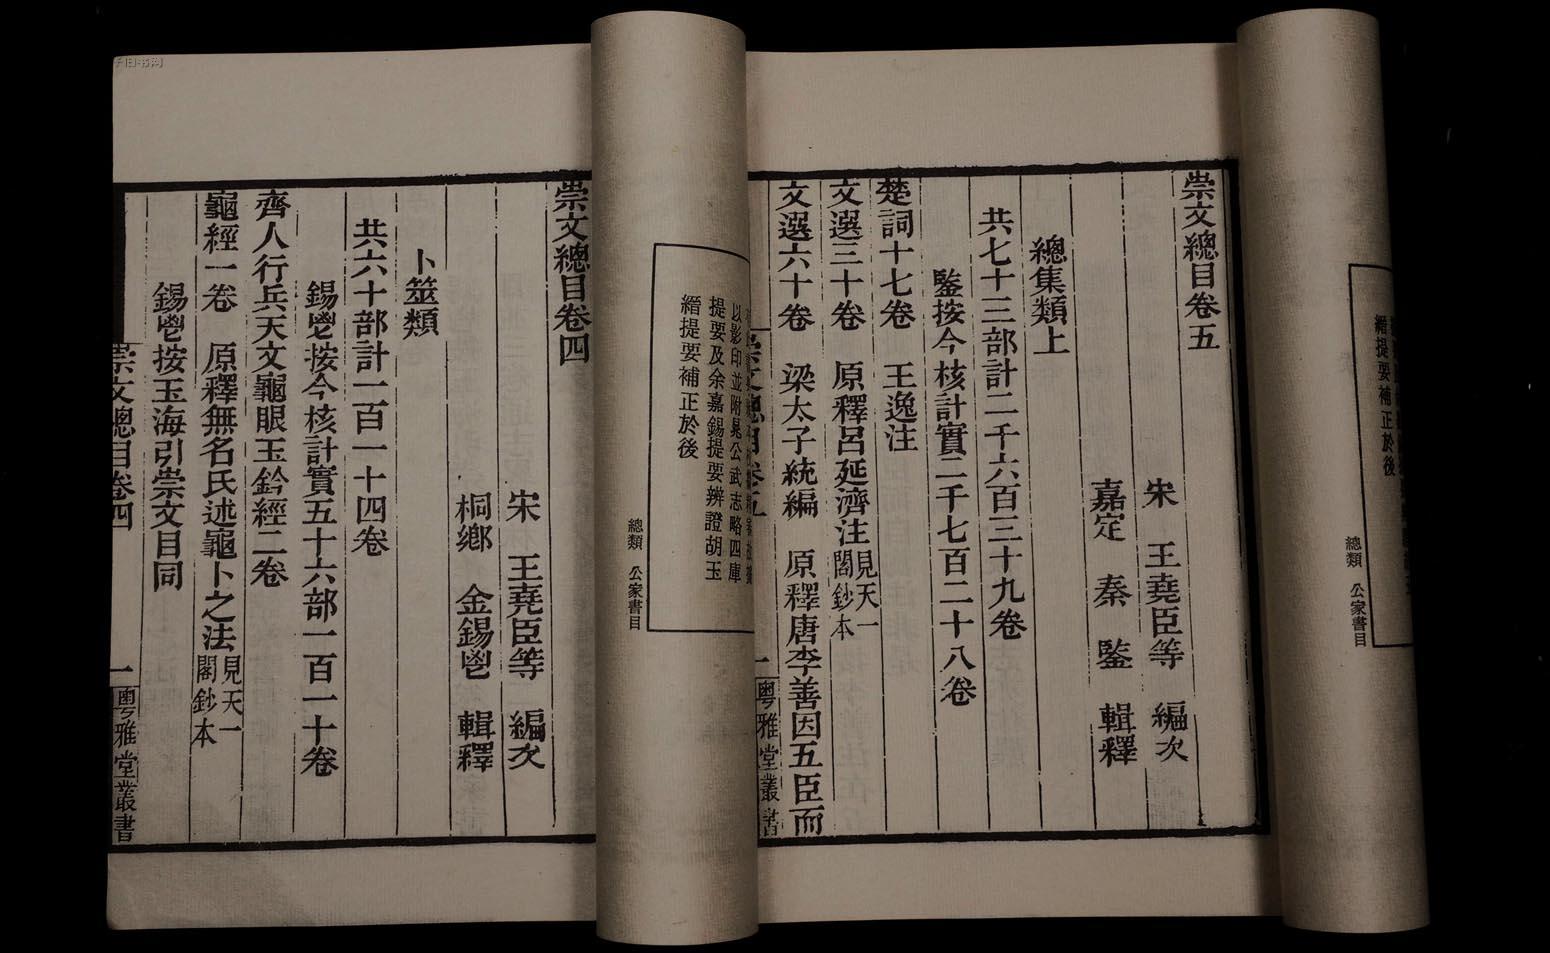 崇文總目卷五
宋　王堯臣等　編次
嘉定　秦　鑒　輯釋
總集類上
共七十三部計二千六百三十九卷
鑒按今核計實二千七百二十八卷
楚詞十七卷　王逸注
文選三十卷　原釋呂延濟注見天一閣鈔本
文選六十卷　梁太子統編　原釋唐李善因五臣而
崇文總目卷五
一
粵雅堂叢書
以影印並附晁公武志略四庫
提要及余嘉錫提要辨證胡玉
縉提要補正於後
總類　公家書目
崇文總目卷四
宋　王堯臣等　編次
桐鄉　金錫鬯　輯釋
卜筮類
共六十部計一百一十四卷
錫鬯按今核計實五十六部一百一十卷
齊人行兵天文龜眼玉鈐經二卷
龜經一卷　原釋無名氏述龜卜之法見天一閣鈔本
錫鬯按玉海引崇文目同
崇文總目卷四
一
粵雅堂叢書
縉提要補正於後
總類　公家書目